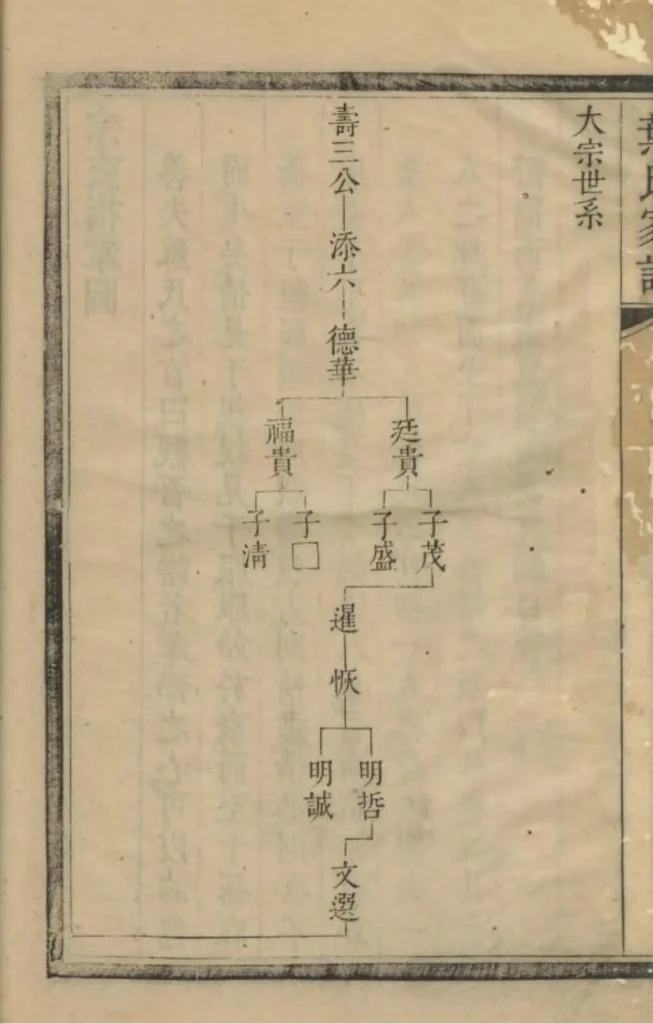 葉氏家譜
大宗世系
壽三公
添六
德華
廷貴
福貴
子茂
子盛
子□
子清
暹
恢
明哲
明誠
文選